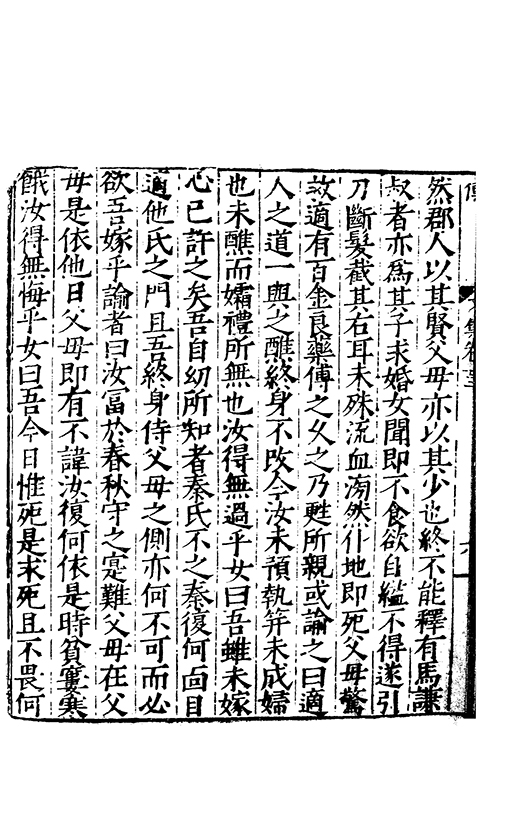 然郡人以其賢父母亦以其少也終不能釋有馬謙
叔者亦爲其子求婚女聞即不食欲自縊不得遂引
刀斷髮截其右耳未殊流血滂然仆地即死父母驚
救適有百金良藥傅之久之乃甦所親或諭之曰適
人之道一與之醮終身不改今汝未預執笄未成婦
也未醮而孀禮所無也汝得無過乎女曰吾雖未嫁
心已許之矣吾自幼所知者秦氏不之秦復何面目
適他氏之門且吾終身侍父母之側亦何不可而必
欲吾嫁乎諭者曰汝富於春秋守之寔難父母在父
母是依他日父母即有不諱汝復何依是時貧窶寒
餓汝得無悔乎女曰吾今日惟死是求死且不畏何